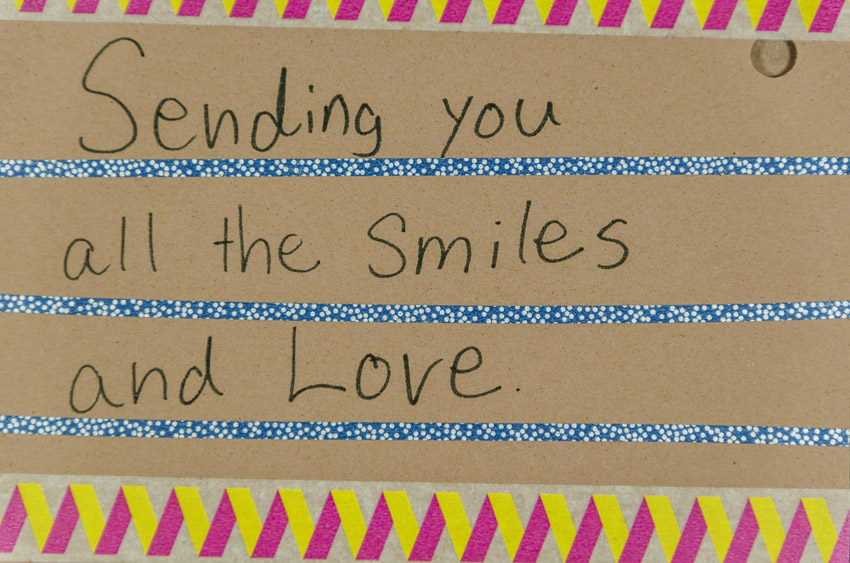 Sending you
all the Smiles
and Love.